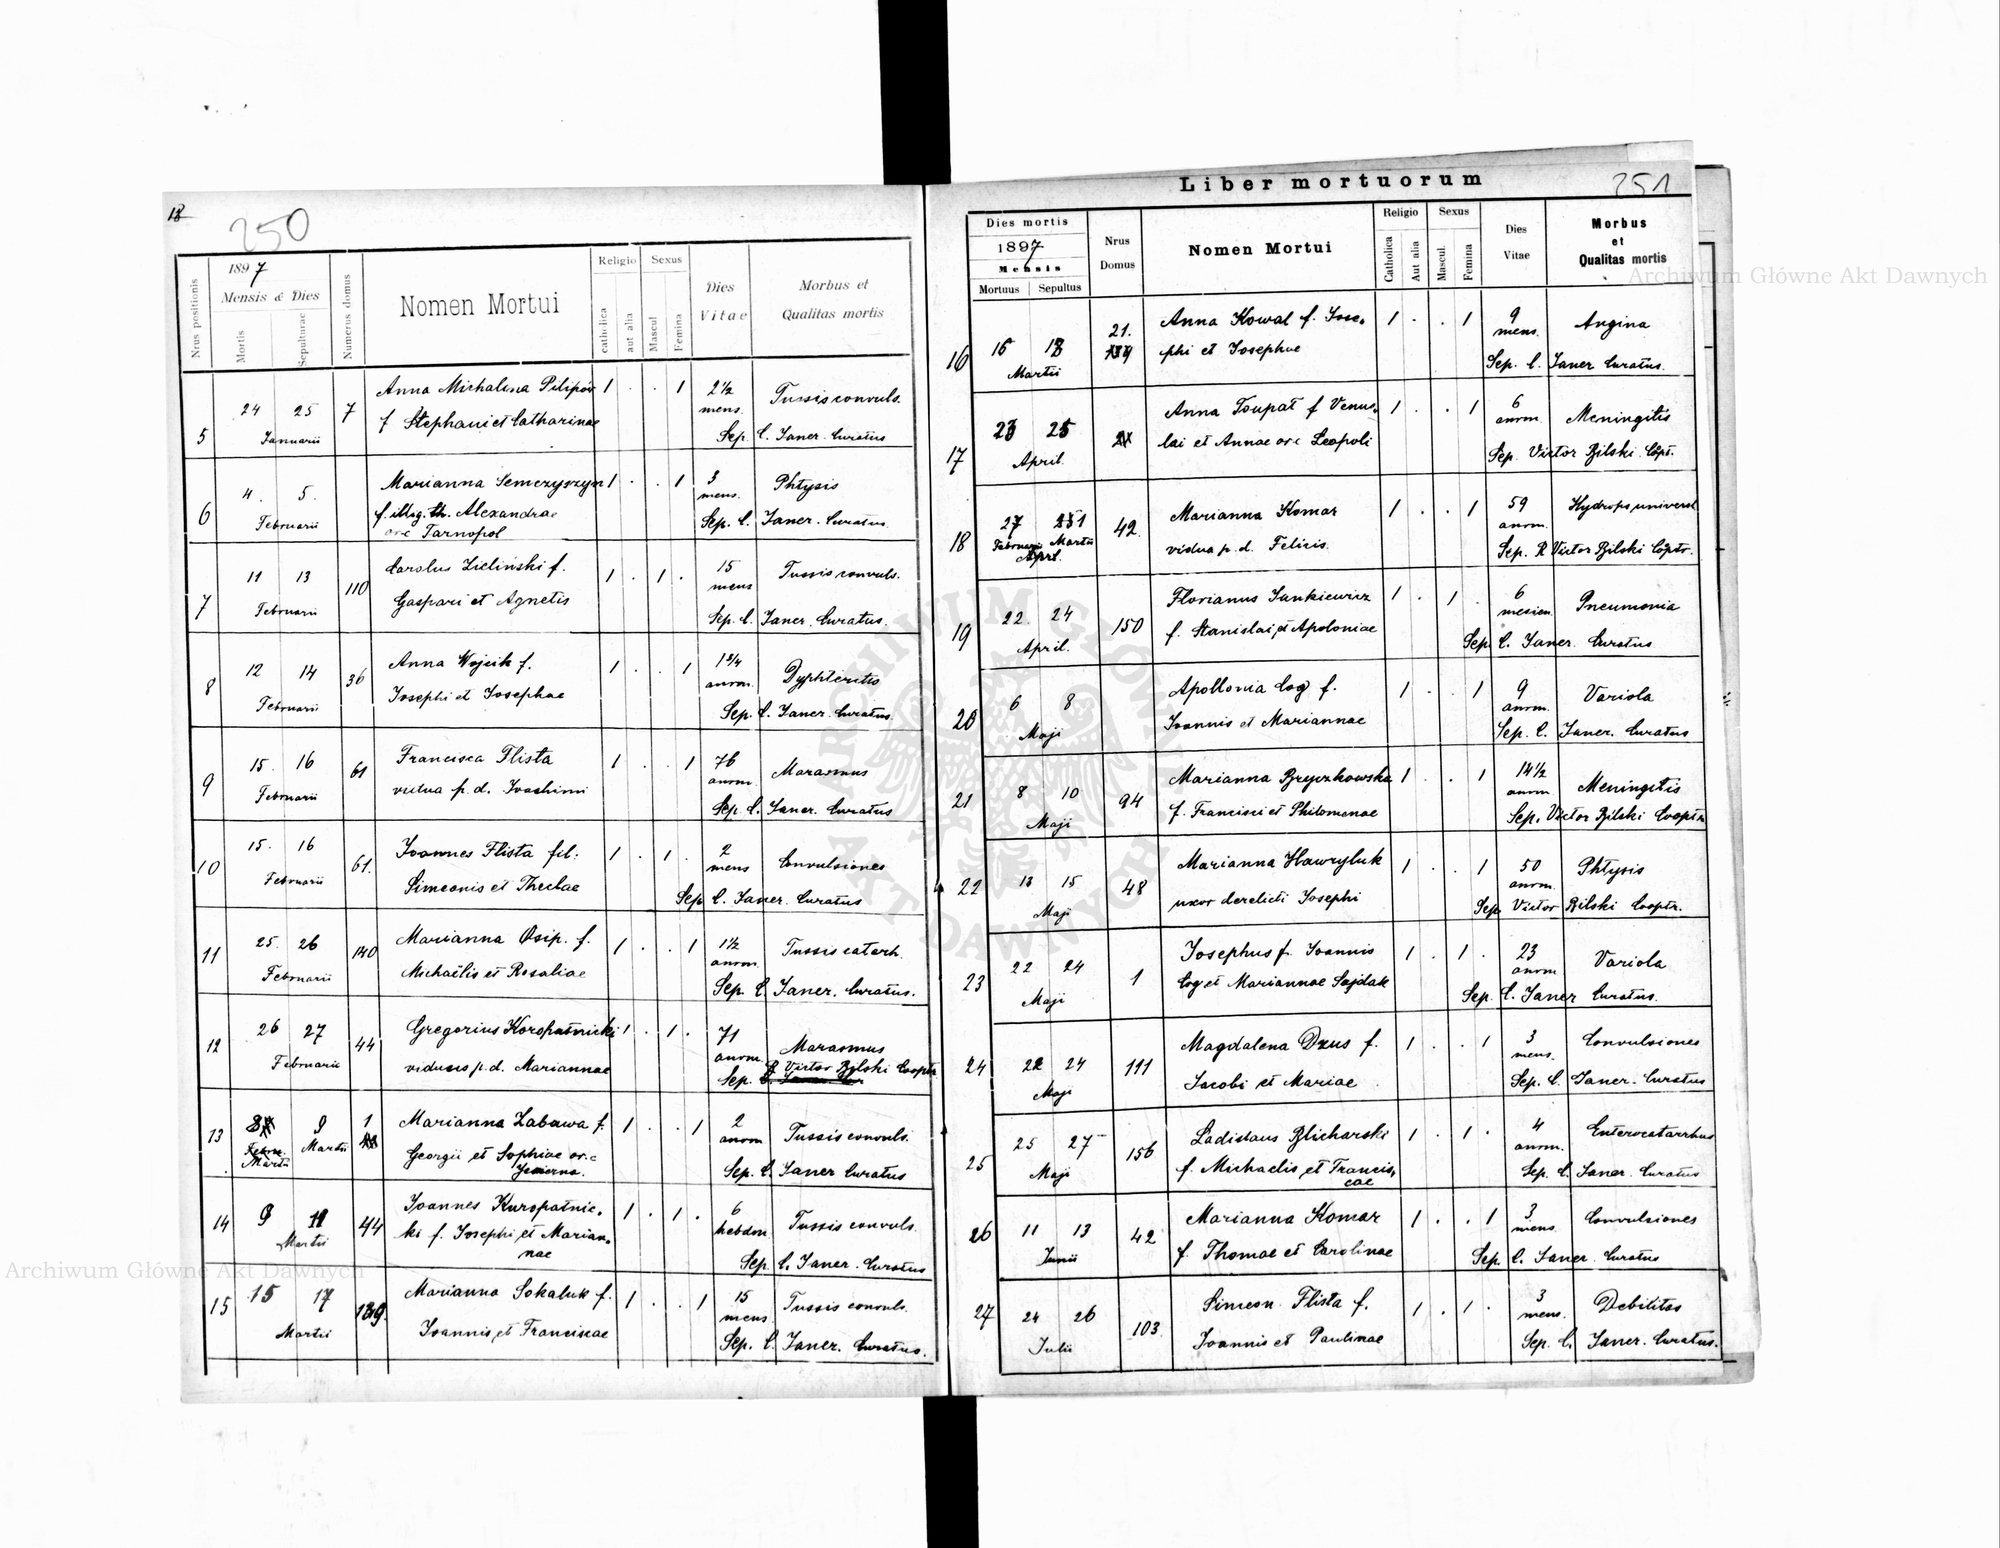 18
250
Nrus positionis
1897
Mensis & Dies
Mortis
Sepulturae
Numerus domus
Nomen Mortui
Religio
catholica
aut alia
Sexus
Mascul
Femina
Dies
Vitae
Morbus et
Qualitas mortis
5
24 25
Januarii
7
Anna Michalina Pilipów
f Stephani et Catharinae
1 . . 1
2½
mens.
Tussis convuls.
Sep. C. Janer. Curatus
6
4. 5.
Februarii
Marianna Semczyszyn
f. illeg. th. Alexandrae
orc Tarnopol
1 . . 1
3
mens.
Phtysis
Sep. C. Janer. Curatus
7
11 13
Februarii
110
Carolus Zieliński f.
Gaspari et Agnetis
1 . 1 .
15
mens
Tussis convuls.
Sep. C. Janer. Curatus.
8
12 14
Februarii
36
Anna Wojcik f.
Josephi et Josephae
1 . . 1
1¾
annm.
Dyphteritis
Sep. C. Janer. Curatus.
9
15. 16
Februarii
61
Francisca Flista
vidua p. d. Joachimi
1 . . 1
76
annm.
Marasmus
Sep. C. Janer. Curatus
10
15. 16
Februarii
61.
Joannes Flista fil:
Simeonis et Theclae
1 . 1 .
2
mens
Convulsiones
Sep. C. Janer. Curatus
11
25. 26
Februarii
140
Marianna Osip. f.
Michaëlis et Rosaliae
1 . . 1
1½
annm.
Tussis catarh.
Sep. C. Janer. Curatus.
12
26 27
Februarii
44
Gregorius Koropatnicki
viduus p. d. Mariannae
1 . 1 .
71
annm.
Marasmus
R Victor Bilski Cooptr
Sep.
13
8 9
Martii
Martii
1
Marianna Zabawa f.
Georgii et Sophiae orc
Jezierna.
1 . . 1
2
annm
Tussis convuls.
Sep. C. Janer Curatus
14
9 11
Martii
44
Joannes Kuropatnic.
ki f. Josephi et Marian.
nae
1 . 1 .
6
hebdm
Tussis convuls.
Sep. C. Janer. Curatus
15
15 17
Martii
139.
Marianna Sokaluk f.
Joannis et Franciscae
1 . . 1
15
mens
Tussis convuls.
Sep. C. Janer. Curatus.
Liber mortuorum
251
Dies mortis
1897
Mensis
Mortuus Sepultus
Nrus
Domus
Nomen Mortui
Religio
Catholica
Aut alia
Sexus
Mascul.
Femina
Dies
Vitae
Morbus
et
Qualitas mortis
16
16 18
Martii
21.
Anna Kowal f. Jose.
phi et Josephae
1 . . 1
9
mens.
Angina
Sep. C. Janer Curatus.
17
23 25
April.
Anna Toupat f Venus.
lai et Annae orc Leopoli
1 . . 1
6
annm.
Meningitis
Sep. Victor Bilski. Copt.
18
27 1
Februarii Martii
April.
42.
Marianna Komar
vidua p. d. Felicis.
1 . . 1
59
annm.
Hydrops univers
Sep. R Victor Bilski Coptr.
19
22. 24
April.
150
Florianus Jankiewicz
f. Stanislai et Apoloniae
1 . 1 .
6
mesien
Pneumonia
Sep. C. Janer. Curatus
20
6 8
Maji
Apollonia Cog f.
Joannis et Mariannae
1 . . 1
9
annm.
Variola
Sep. C. Janer. Curatus
21
8 10
Maji
94
Marianna Bryczkowska
f. Francisci et Philomenae
1 . . 1
14½
annm
Meningitis
Sep. Victor Bilski Cooptr
22
13 15
Maji
48
Marianna Hawryluk
uxor derelicti Josephi
1 . . 1
50
annm.
Phtysis
Sep. Victor Bilski Cooptr.
23
22 24
Maji
1
Josephus f. Joannis
Cog et Mariannae Sajdak
1 . 1 .
23
annm
Variola
Sep. C. Janer Curatus.
24
22 24
Maji
111
Magdalena Dzus f.
Jacobi et Mariae
1 . . 1
3
mens.
Convulsiones
Sep. C. Janer. Curatus
25
25 27
Maji
156
Ladislaus Blicharski
f. Michaelis et Francis.
cae
1 . 1 .
4
annm.
Enterocatarrhus
Sep. C. Janer. Curatus
26
11 13
Junii
42
Marianna Komar
f. Thomae et Carolinae
1 . . 1
3
mens.
Convulsiones
Sep. C. Janer. Curatus
27
24 26
Julii
103
Simeon Flista f.
Joannis et Paulinae
1 . 1 .
3
mens.
Debilitas
Sep. C. Janer. Curatus.
Archiwum Główne Akt Dawnych
Archiwum Główne Akt Dawnych
ARCHIWUM GŁÓWNE AKT DAWNYCH